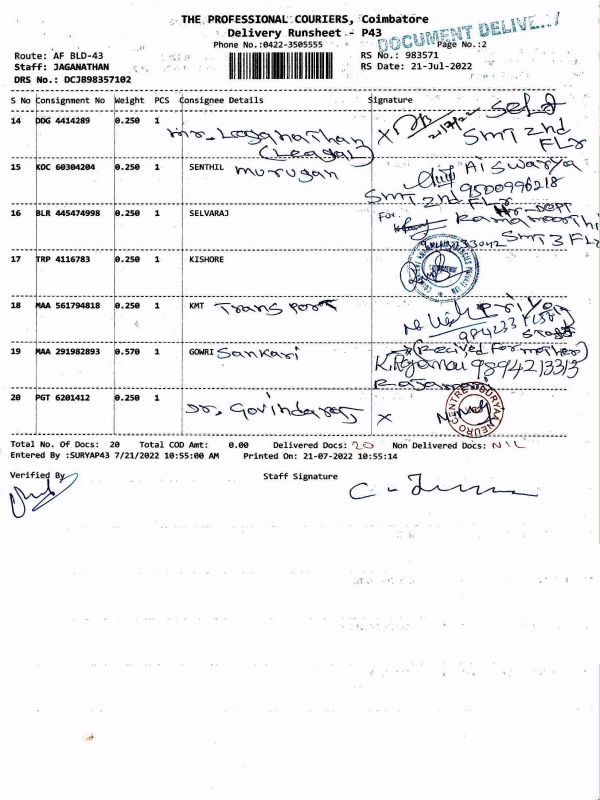 THE PROFESSIONAL COURIERS, Coimbatore
Delivery Runsheet - P43
DOCUMENT DELIVE
Phone No.:0422-3505555
Page No.:2
Route: AF BLD-43
RS No.: 983571
Staff: JAGANATHAN
RS Date: 21-Jul-2022
DRS No.: DCJB98357102
S No Consignment No Weight PCS Consignee Details Signature
14 DDG 4414289 0.250 1 Mr. Loganathan (Leagal) X 21/7/22 Self SMT 2nd FLr
15 KOC 60304204 0.250 1 SENTHIL murugan Aiswarya 9500996218 SMT 2nd FLr
16 BLR 445474998 0.250 1 SELVARAJ For Hr-DEPT SMT 3 FLr
17 TRP 4116783 0.250 1 KISHORE
18 MAA 561794818 0.250 1 KMT Transport Priya
19 MAA 291982893 0.570 1 GOWRI Sankari (Recived for mother) 9894213313
20 PGT 6201412 0.250 1 Dr. Govindaraj X
Total No. Of Docs: 20 Total COD Amt: 0.00 Delivered Docs: 20 Non Delivered Docs: NIL
Entered By :SURYAP43 7/21/2022 10:55:00 AM Printed On: 21-07-2022 10:55:14
Verified By Staff Signature